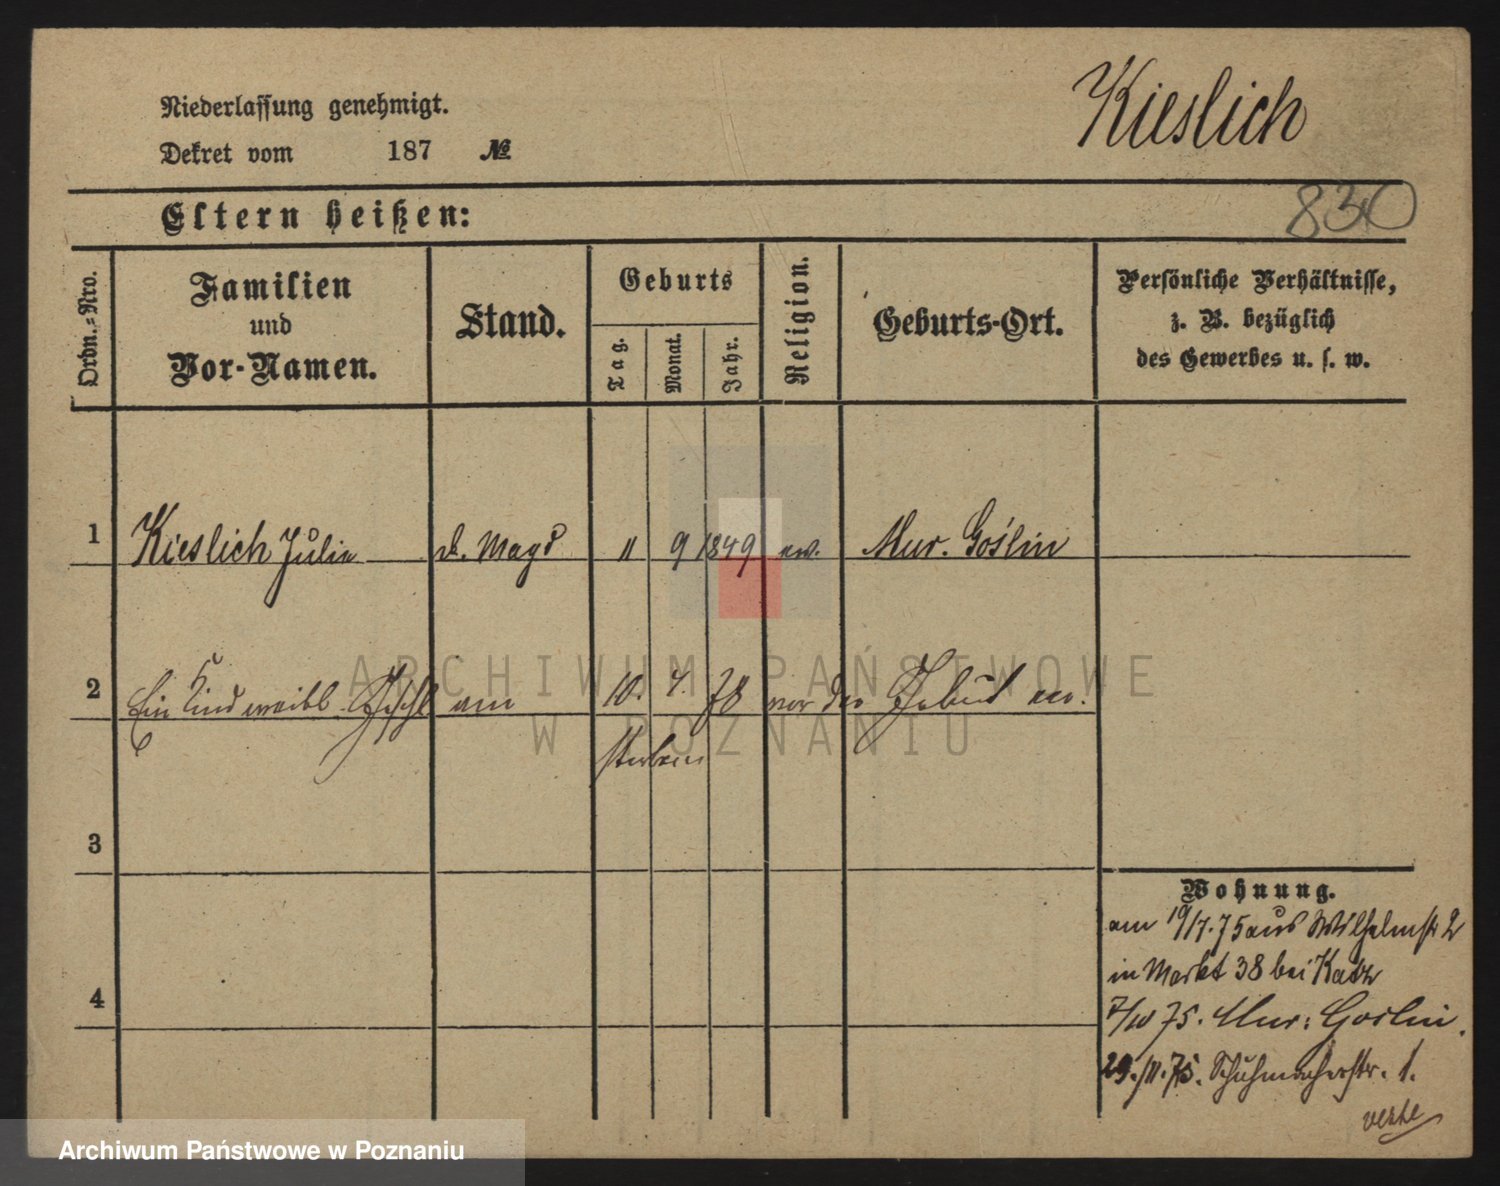 Kieslich
Niederlassung genehmigt.
Dekret vom 187 №
830
Eltern heißen:
Ordn.-Nro.
Familien
und
Vor-Namen.
Stand.
Geburts
Tag.
Monat.
Jahr.
Religion.
Geburts-Ort.
Persönliche Verhältnisse,
z. B. bezüglich
des Gewerbes u. s. w.
1 Kieslich Julie d. Magd 11 9 1849 ev. Mur. Goślin
2 Ein Kind weibl. Geschl am 10. 4. 78 vor der Geburt ver.
storben
3
4
Wohnung.
am 19/7.75 aus Wilhelmstr 2
in Markt 38 bei Katz
7/10 75. Mur: Goslin.
29./11.75. Schuhmacherstr. 1.
verte
ARCHIWUM PAŃSTWOWE
W POZNANIU
Archiwum Państwowe w Poznaniu